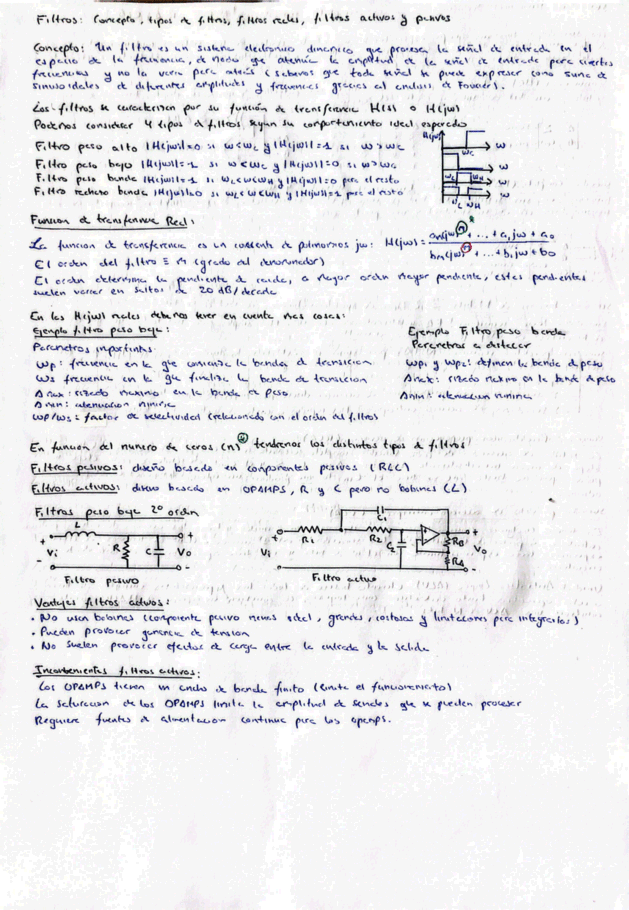 Filtros: Concepto, tipos de filtros, filtros reales, filtros activos y pasivos
Concepto: Un filtro es un sistema electronico dinamico que procesa la señal de entrada en el
espacio de la frecuencia, de modo que atenua la amplitud de la señal de entrada para ciertas
frecuencias y no la varia para otras (sabemos que toda señal se puede expresar como suma de
sinusoidales de diferentes amplitudes y frecuencias gracias al analisis de Fourier).
Los filtros se caracterizan por su función de transferencia H(s) o H(jw)
Podemos considerar 4 tipos de filtros segun su comportamiento ideal esperado
Filtro paso alto |H(jw)|=0 si w<wc y |H(jw)|=1 si w>wc
Filtro paso bajo |H(jw)|=1 si w<wc y |H(jw)|=0 si w>wc
Filtro paso banda |H(jw)|=1 si wL<w<wH y |H(jw)|=0 para el resto
Filtro rechazo banda |H(jw)|=0 si wL<w<wH y |H(jw)|=1 para el resto
H(jw)
w
wc
w
w
wL wH
w
wL wH
Funcion de transferencia Real:
La funcion de transferencia es un cociente de polinomios jw: H(jw) = an(jw)^n + ... + a1 jw + a0 / bm(jw)^m + ... + b1 jw + b0
El orden del filtro ≡ m (grado del denominador)
El orden determina la pendiente de caida, a mayor orden mayor pendiente, estas pendientes
suelen variar en saltos de 20 dB/decada
En las H(jw) reales debemos tener en cuenta mas cosas:
Ejemplo filtro paso bajo:
Parametros importantes:
wp: frecuencia en la que comienza la banda de transicion
ws frecuencia en la que finaliza la banda de transicion
Amax: rizado maximo en la banda de paso
Amin: atenuacion minima
wp/ws: factor de selectividad (relacionado con el orden del filtro)
Ejemplo Filtro paso banda
Parametros a destacar
wp1 y wp2: definen la banda de paso
Amax: rizado maximo en la banda de paso
Amin: atenuacion minima
En funcion del numero de ceros (n) tendremos los distintos tipos de filtros
Filtros pasivos: diseño basado en componentes pasivos (RLC)
Filtros activos: diseño basado en OPAMPS, R y C pero no bobinas (L)
Filtros paso bajo 2º orden
L
+
Vi
-
R
C
+
Vo
-
Filtro pasivo
C1
+
Vi
-
R1
R2
C2
RB
RA
+
Vo
-
Filtro activo
Ventajas filtros activos:
• No usan bobinas (componente pasivo menos ideal, grandes, costosas y limitaciones para integrarlas)
• Pueden provocar ganancia de tension
• No suelen provocar efectos de carga entre la entrada y la salida
Inconbenientes filtros activos:
Los OPAMPS tienen un ancho de banda finito (limita el funcionamiento)
La saturacion de los OPAMPS limita la amplitud de señales que se pueden procesar
Requiere fuentes de alimentacion continua para los opamps.